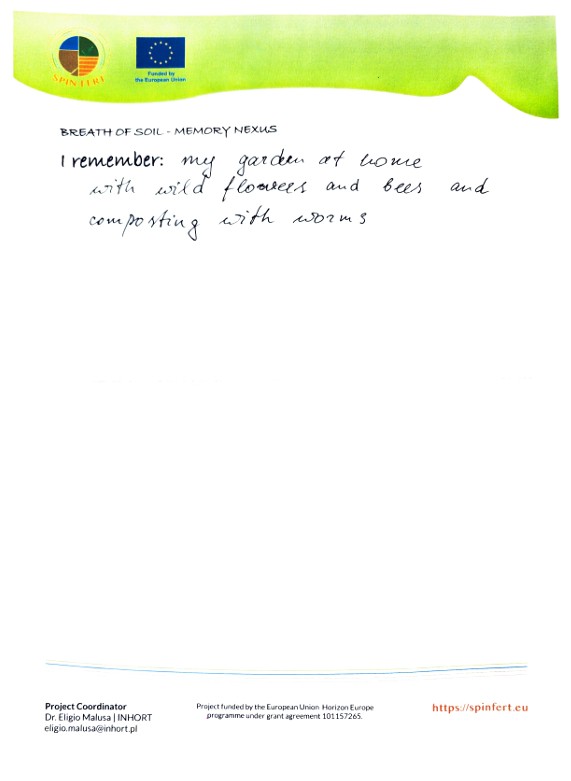 SPIN FERT
Funded by
the European Union
BREATH OF SOIL - MEMORY NEXUS
I remember: my garden at home
with wild flowers and bees and
composting with worms
Project Coordinator
Dr. Eligio Malusa | INHORT
eligio.malusa@inhort.pl
Project funded by the European Union Horizon Europe
programme under grant agreement 101157265.
https://spinfert.eu